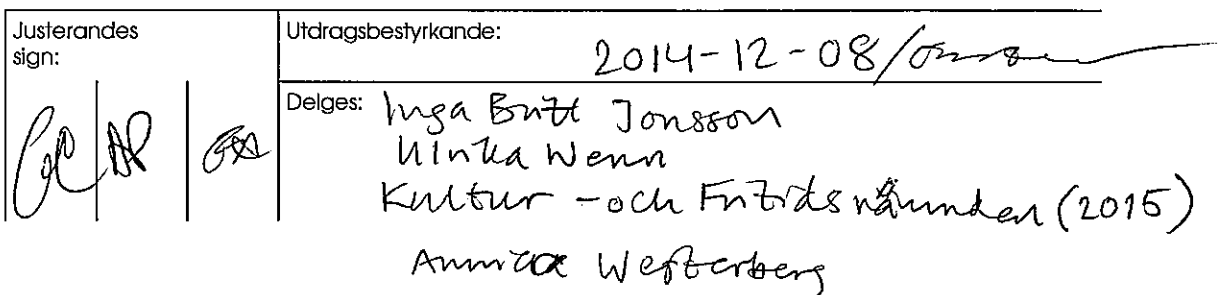 Justerandes
sign:
Utdragsbestyrkande:
2014-12-08/
Delges: Inga Britt Jonsson
Ulrika Wenn
Kultur -och Fritidsnämnden (2015)
Annica Westerberg